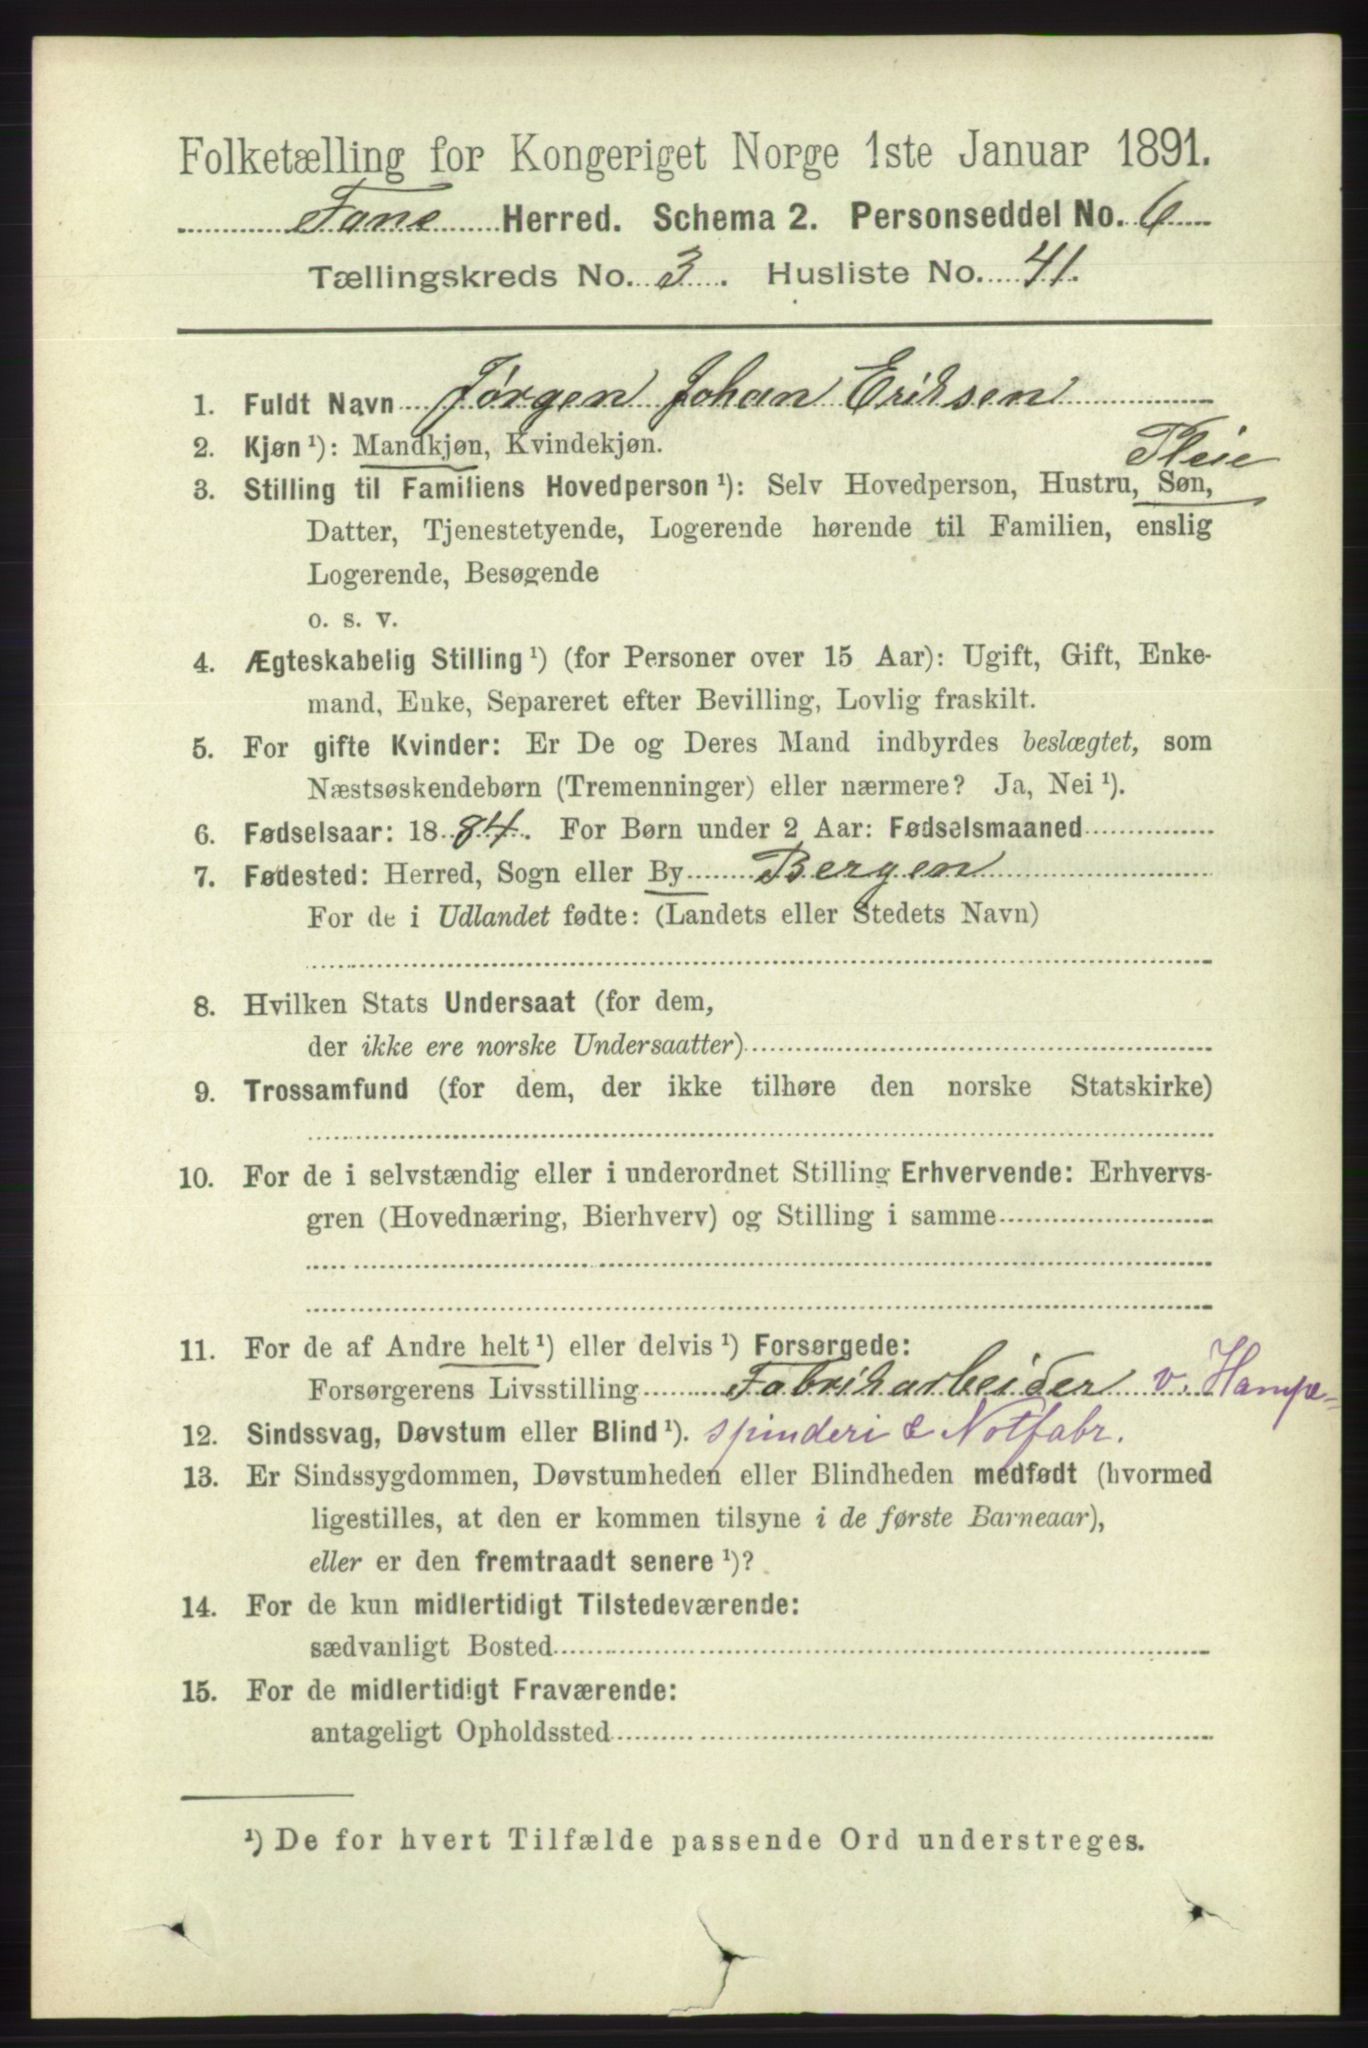 Folketælling for Kongeriget Norge 1ste Januar 1891.
Fane Herred. Schema 2. Personseddel No. 6
Tællingskreds No. 3. Husliste No. 41.
1. Fuldt Navn Jørgen Johan Eriksen
2. Kjøn ¹): Mandkjøn, Kvindekjøn.
Pleie
3. Stilling til Familiens Hovedperson ¹): Selv Hovedperson, Hustru, Søn,
Datter, Tjenestetyende, Logerende hørende til Familien, enslig
Logerende, Besøgende
o. s. v.
4. Ægteskabelig Stilling ¹) (for Personer over 15 Aar): Ugift, Gift, Enke-
mand, Enke, Separeret efter Bevilling, Lovlig fraskilt.
5. For gifte Kvinder: Er De og Deres Mand indbyrdes beslægtet, som
Næstsøskendebørn (Tremenninger) eller nærmere? Ja, Nei ¹).
6. Fødselsaar: 1884. For Børn under 2 Aar: Fødselsmaaned
7. Fødested: Herred, Sogn eller By Bergen
For de i Udlandet fødte: (Landets eller Stedets Navn)
8. Hvilken Stats Undersaat (for dem,
der ikke ere norske Undersaatter)
9. Trossamfund (for dem, der ikke tilhøre den norske Statskirke)
10. For de i selvstændig eller i underordnet Stilling Erhvervende: Erhvervs-
gren (Hovednæring, Bierhverv) og Stilling i samme
11. For de af Andre helt ¹) eller delvis ¹) Forsørgede:
Forsørgerens Livsstilling Fabrikarbeider v. Hampe-
12. Sindssvag, Døvstum eller Blind ¹). spinderi & Notfabr.
13. Er Sindssygdommen, Døvstumheden eller Blindheden medfødt (hvormed
ligestilles, at den er kommen tilsyne i de første Barneaar),
eller er den fremtraadt senere ¹)?
14. For de kun midlertidigt Tilstedeværende:
sædvanligt Bosted
15. For de midlertidigt Fraværende:
antageligt Opholdssted
¹) De for hvert Tilfælde passende Ord understreges.